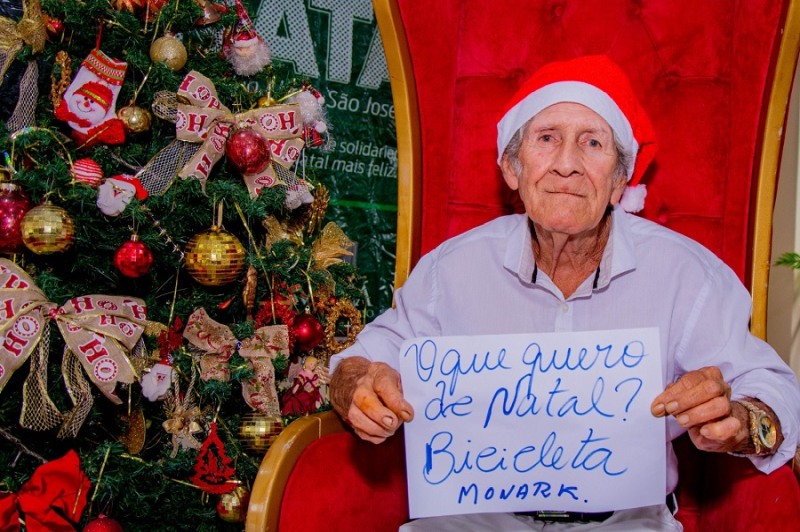 NATA
São José
de solidarie
tal mais feliz
HO HO HO
HO HO HO
O que quero
de Natal?
Bicicleta
MONARK.